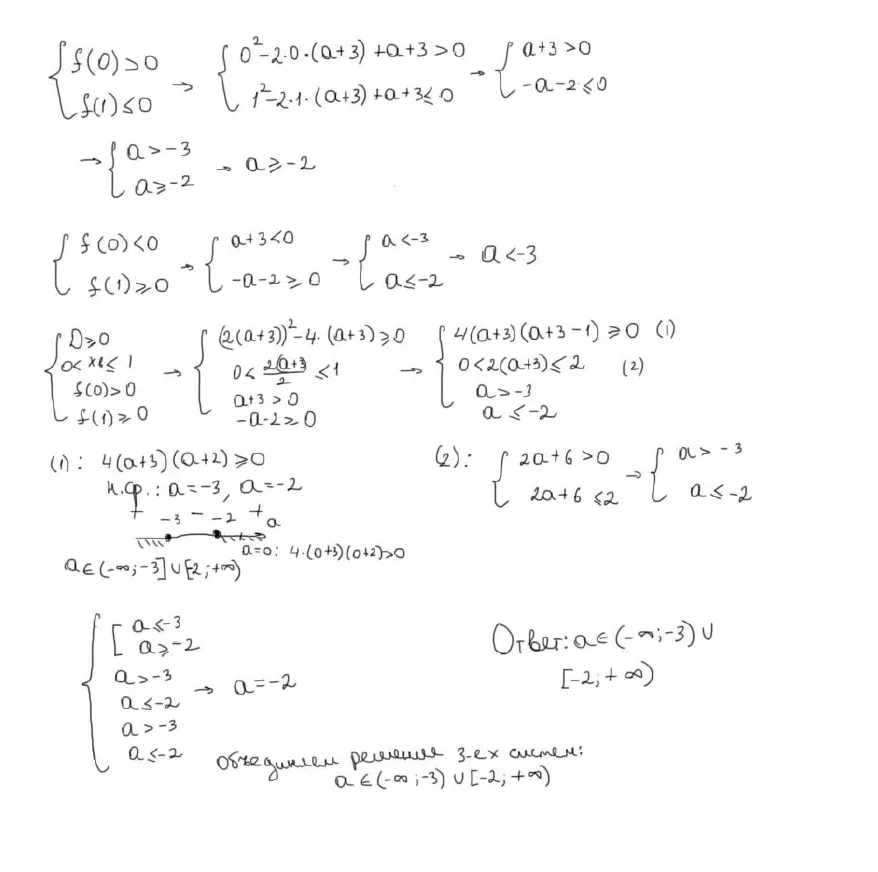 { f(0)>0 f(1)≤0 → { 0²-2·0·(a+3)+a+3>0 1²-2·1·(a+3)+a+3≤0 → { a+3>0 -a-2≤0
→ { a>-3 a≥-2 → a≥-2
{ f(0)<0 f(1)≥0 → { a+3<0 -a-2≥0 → { a<-3 a≤-2 → a<-3
{ D≥0 0<xв≤1 f(0)>0 f(1)≥0 → { (2(a+3))²-4·(a+3)≥0 0<2(a+3)/2≤1 a+3>0 -a-2≥0 → { 4(a+3)(a+3-1)≥0 (1) 0<2(a+3)≤2 (2) a>-3 a≤-2
(1): 4(a+3)(a+2)≥0
н.ф.: a=-3, a=-2
+ -3 - -2 + a
a=0: 4·(0+3)(0+2)>0
a∈(-∞;-3]∪[-2;+∞)
(2): { 2a+6>0 2a+6≤2 → { a>-3 a≤-2
{ [ a≤-3 a≥-2 a>-3 a≤-2 a>-3 a≤-2 → a=-2
Объединяем решения 3-ех систем:
a∈(-∞;-3)∪[-2;+∞)
Ответ: a∈(-∞;-3)∪
[-2;+∞)